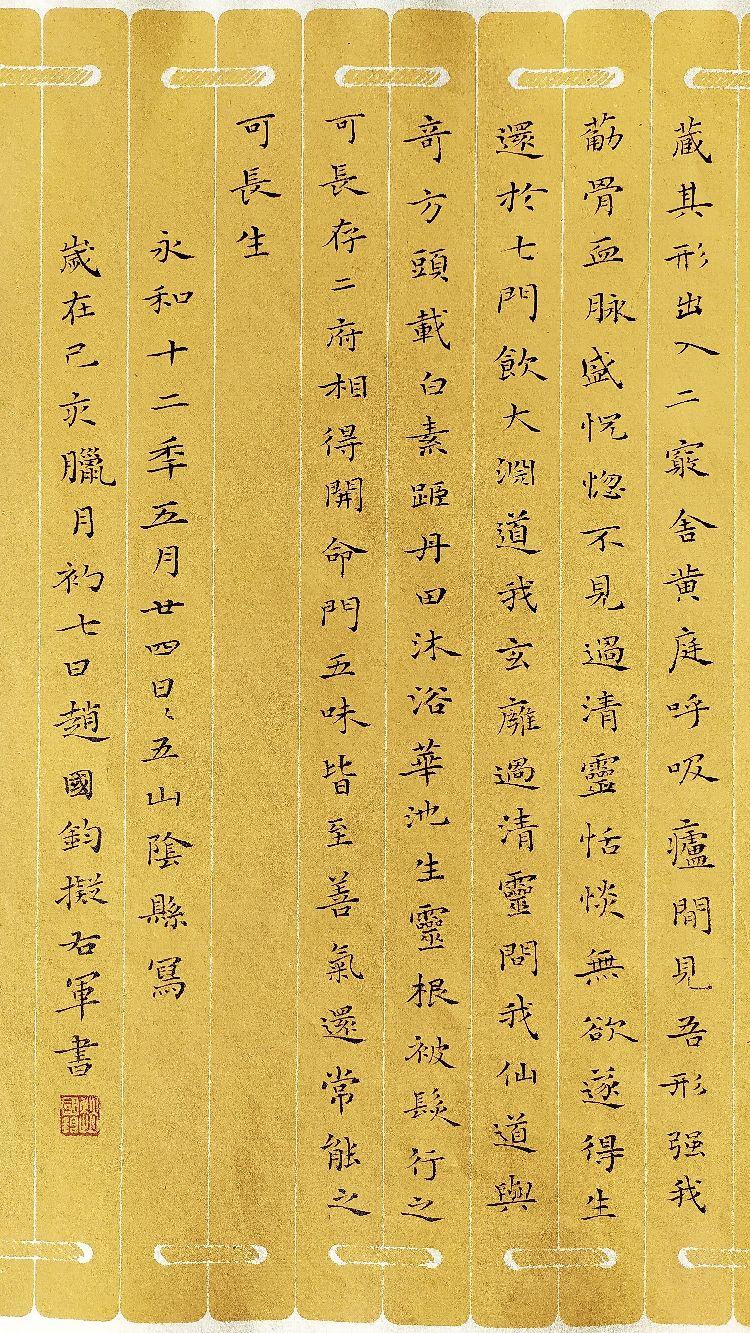 藏其形出入二竅舍黄庭呼吸廬間見吾形强我
筋骨血脉盛恍惚不見過清靈恬惔無欲遂得生
還於七門飲大淵道我玄廱過清靈問我仙道與
奇方頭載白素距丹田沐浴華池生靈根被髮行之
可長存二府相得開命門五味皆至善氣還常能之
可長生
永和十二季五月廿四日〻五山陰縣寫
歲在己亥臘月初七日趙國鈞擬右軍書